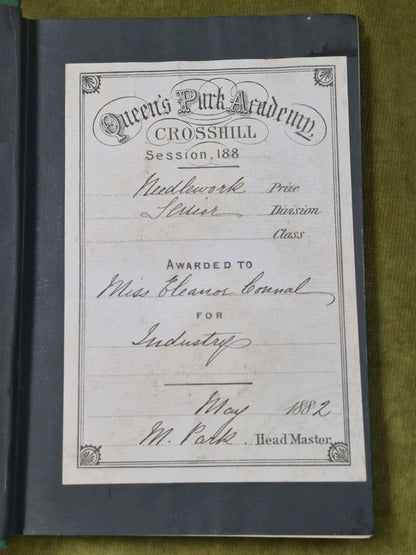 Queen's Park Academy,
CROSSHILL
Session, 188
Needlework Prize
Senior Division
Class
AWARDED TO
Miss Eleanor Connal
FOR
Industry
May 1882
M. Park. Head Master.